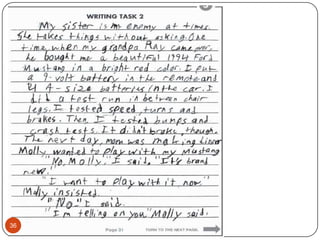 WRITING TASK 2
My sister is my enemy at times.
She takes things without asking. One
time, when my grandpa Ray came over,
he bought me a beautiful 1994 Ford
Mustang in a bright red color. I put
a 9-volt battery in the remote and
4 A-size batteries in the car. I
did a test run in between chair
legs. I tested speed, turns and
brakes. Then I tested bumps and
crash tests. It didn't broke, though.
The next day, mom was making dinner
Molly wanted to play with my Mustang
"No, Molly," I said. "It's brand
new."
"I want to play with it now"
Molly insisted.
"No" I said.
"I'm telling on you" Molly said.
36
Page 31
TURN TO THE NEXT PAGE